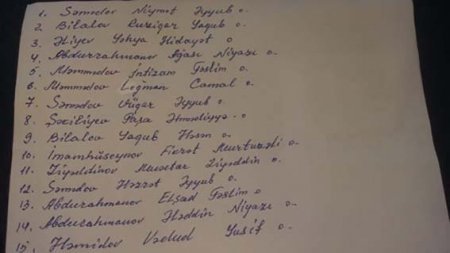 1. Səmədov Niymət Əyyub o.
2. Bilalov Ruzigar Yaqub o.
3. Əliyev Yəhya Hidayət o.
4. Abdurrahmanov Ağası Niyazi o.
5. Məmmədov İntizam Təslim o.
6. Məmmədov Loğman Camal o.
7. Səmədov Vüqar Əyyub o.
8. Şəxiliyev Paşa o.
9. Bilalov Yaqub Həsən o.
10. İmamhüseynov Fikrət Murtuzəli o.
11. Ziyəddinov Muxtar Ziyəddin o.
12. Səmədov Həzrət Əyyub o.
13. Abdurahmanov Elşad Təslim o.
14. Abdurahmanov Həddin Niyazi o.
15. Həmidov Vədud Yusif o.